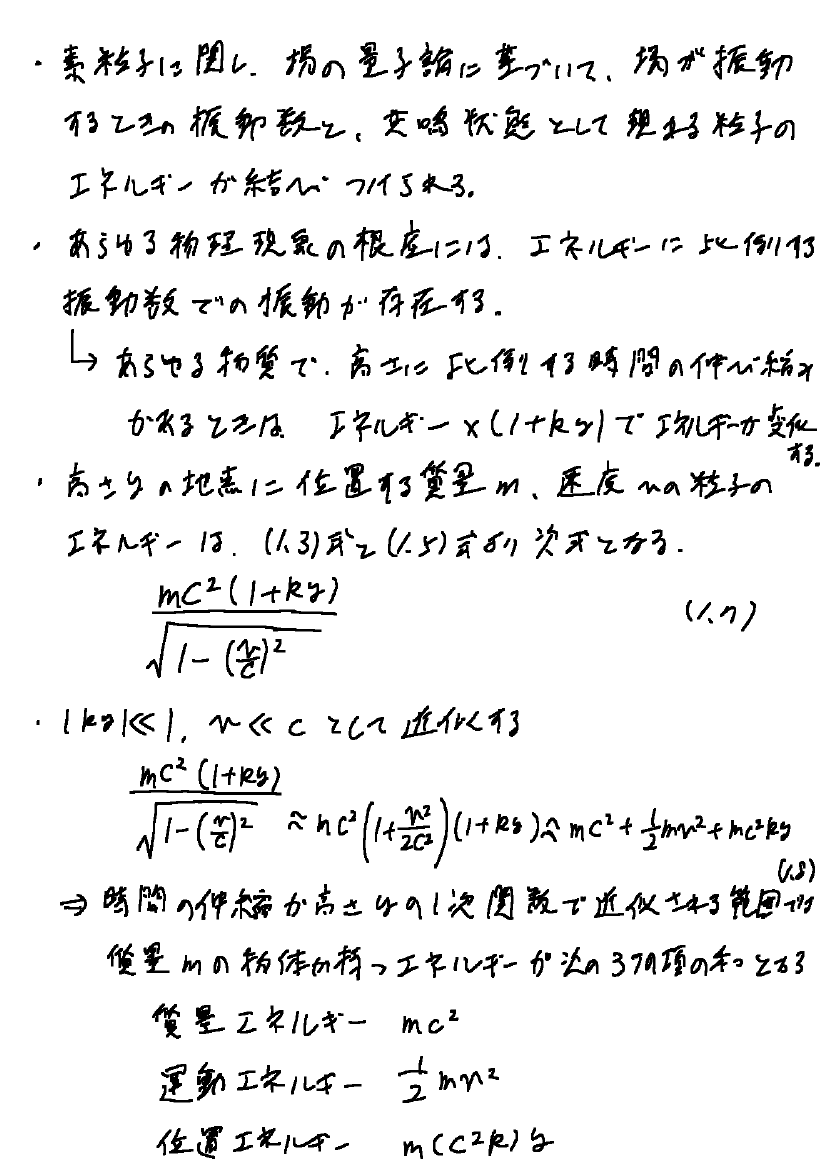 ・素粒子に関し、場の量子論に基づいて、場が振動
するときの振動数と、共鳴状態として現れる粒子の
エネルギーが結びつけられる。
・あらゆる物理現象の根底には、エネルギーに比例する
振動数での振動が存在する。
↳ あらゆる物質で、高さに比例する時間の伸び縮み
があるときは、エネルギー×(1+ky)でエネルギーが変化
する。
・高さyの地点に位置する質量m、速度vの粒子の
エネルギーは、(1.3)式と(1.5)式より次式となる。
mc²(1+ky) / √(1-(v/c)²) (1.7)
・|ky|≪1, v≪c として近似する
mc²(1+ky) / √(1-(v/c)²) ≈ mc²(1+v²/2c²)(1+ky) ≈ mc² + 1/2mv² + mc²ky
(1.8)
⇒ 時間の伸縮が高さyの1次関数で近似される範囲では
質量mの物体が持つエネルギーが次の3つの項の和となる
質量エネルギー mc²
運動エネルギー 1/2 mv²
位置エネルギー m(c²k)y